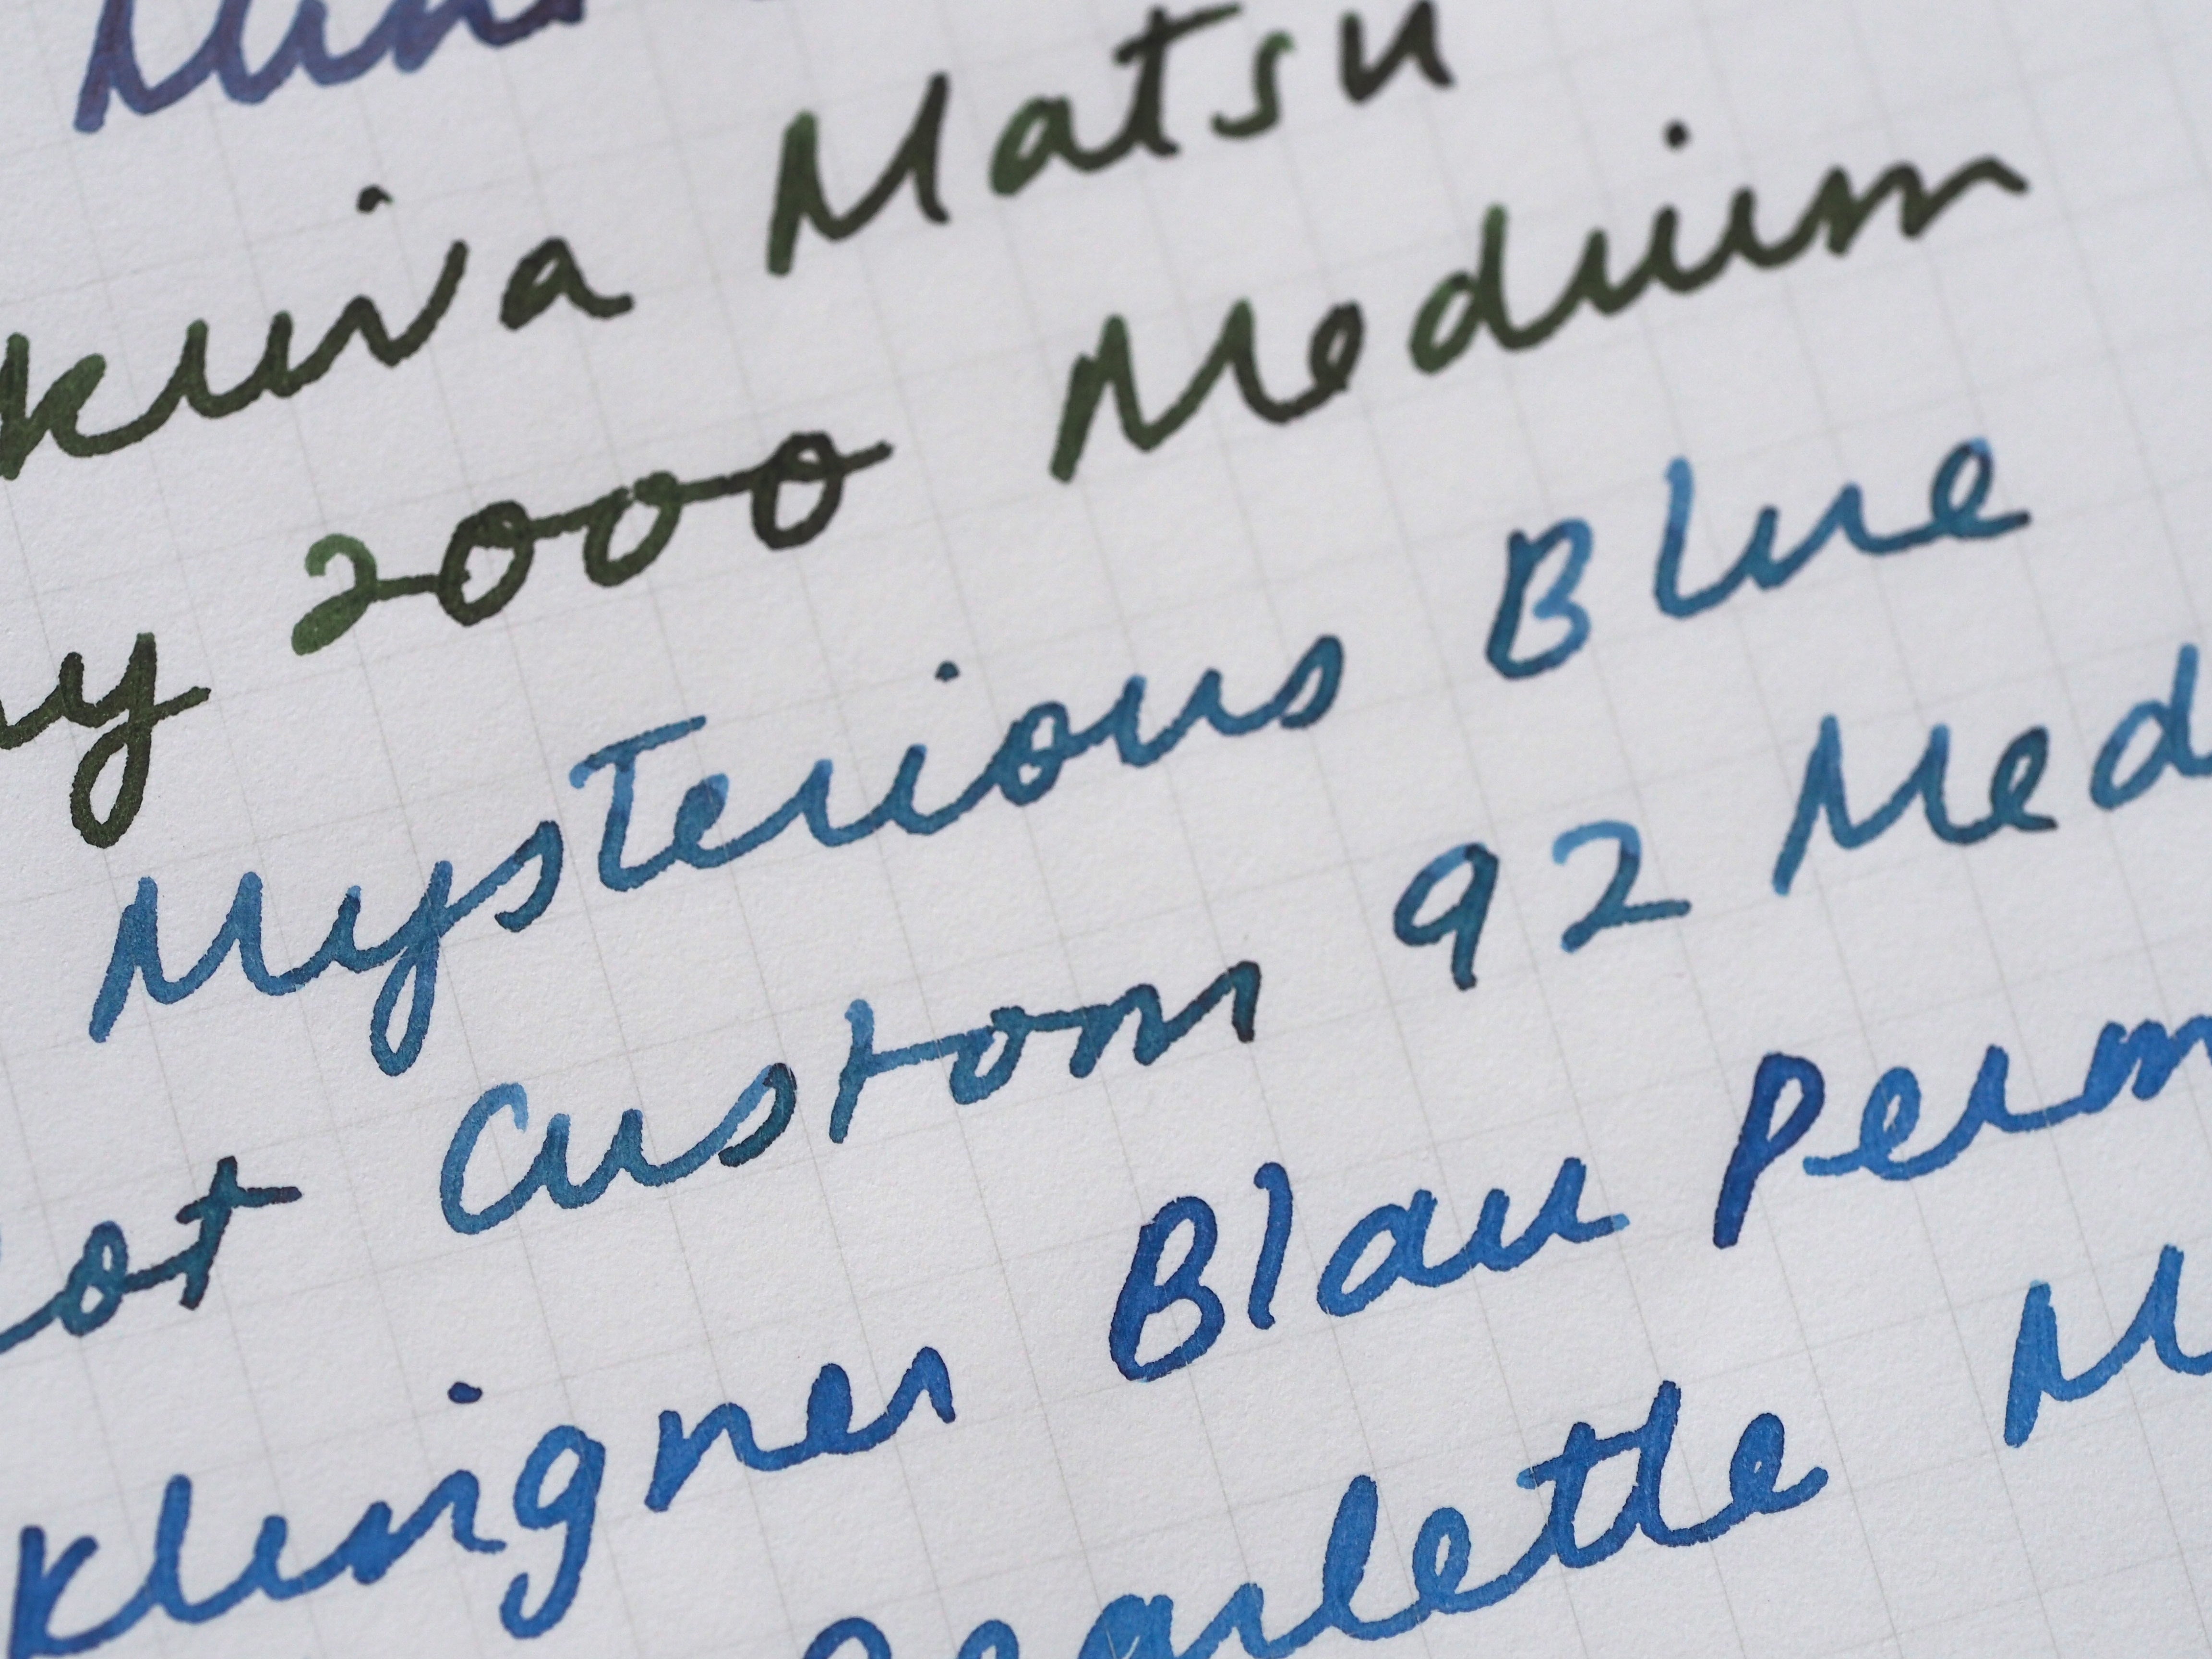 kuwa Matsu
y 2000 Medium
Mysterious Blue
ot Custom 92 Med
Klingner Blau Perm
M